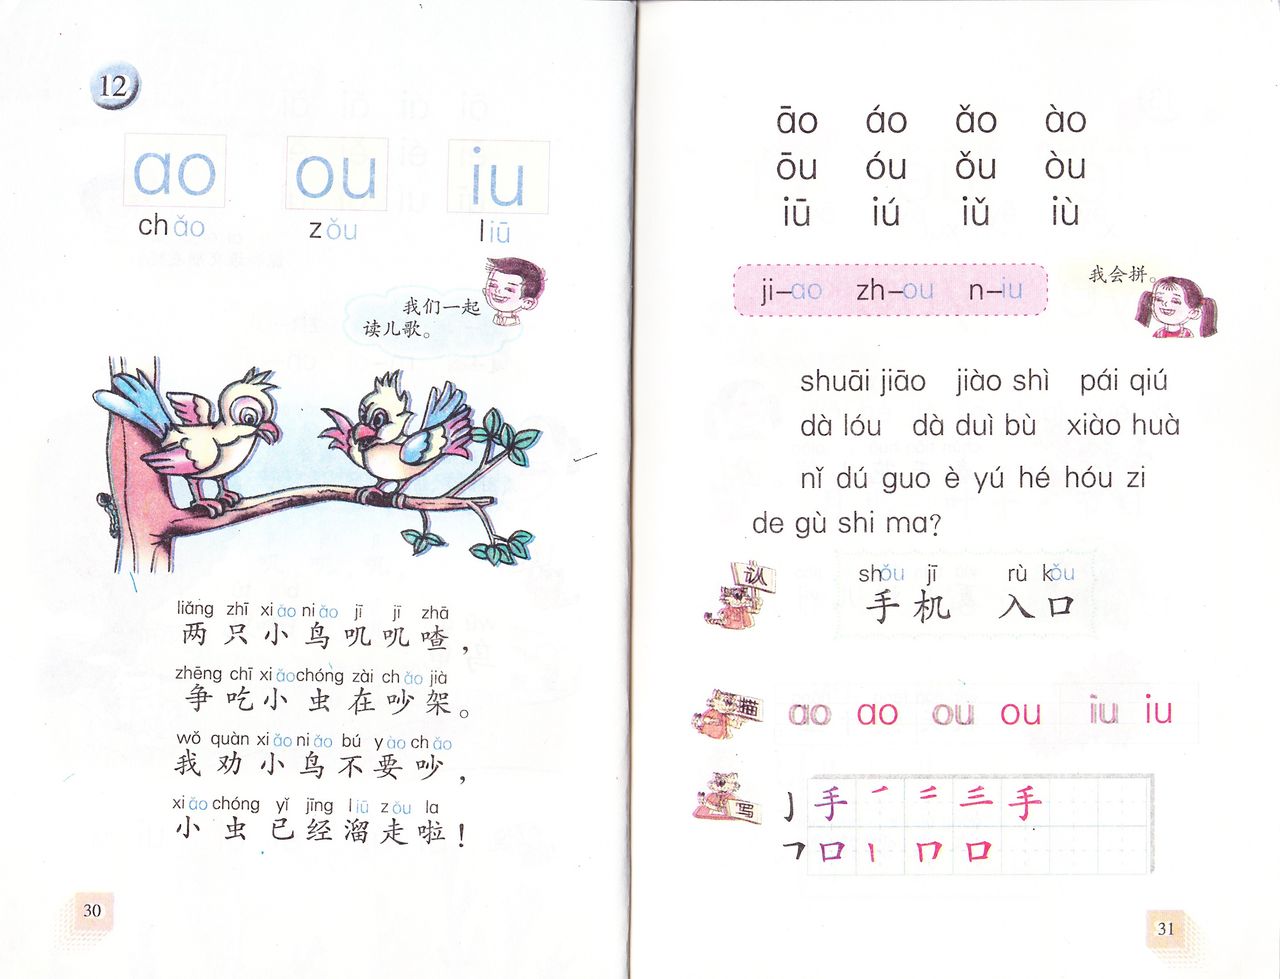 12
ao ou iu
chǎo zǒu liū
我们一起
读儿歌。
liǎng zhī xiǎo niǎo jī jī zhā
两只小鸟叽叽喳，
zhēng chī xiǎo chóng zài chǎo jià
争吃小虫在吵架。
wǒ quàn xiǎo niǎo bú yào chǎo
我劝小鸟不要吵，
xiǎo chóng yǐ jīng liū zǒu la
小虫已经溜走啦！
30
āo áo ǎo ào
ōu óu ǒu òu
iū iú iǔ iù
ji–ao zh–ou n–iu
我会拼。
shuāi jiāo jiào shì pái qiú
dà lóu dà duì bù xiào huà
nǐ dú guo è yú hé hóu zi
de gù shi ma?
认
shǒu jī rù kǒu
手机 入口
描
ao ao ou ou iu iu
写
亅 手 ㇒ 二 三 手
𠃍 口 丨 冂 口
31